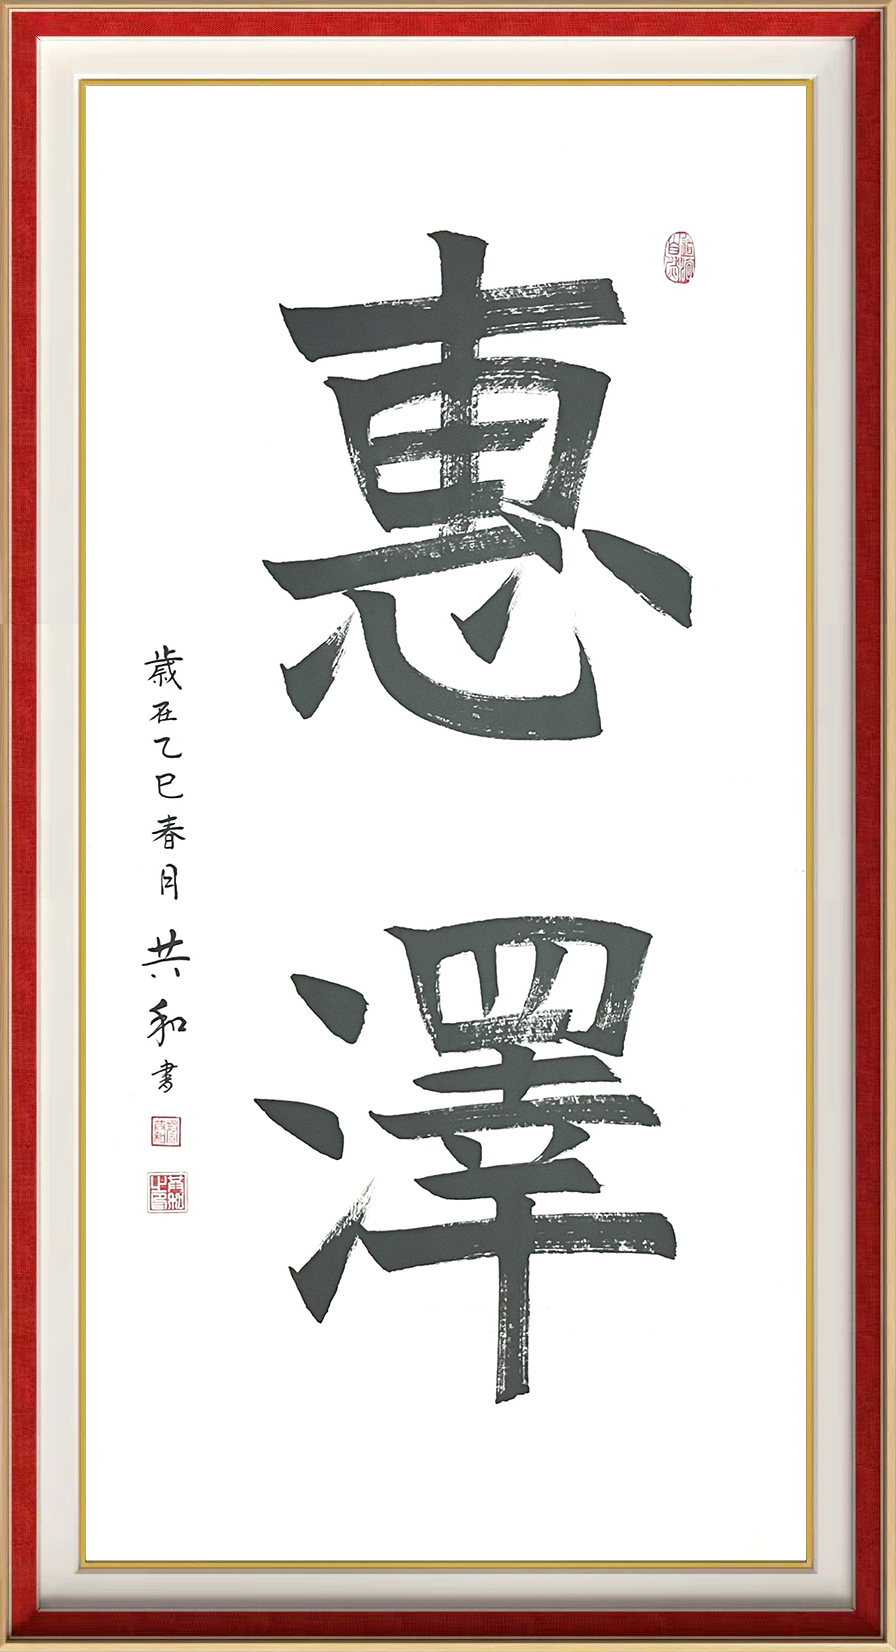 惠澤
歲在乙巳春月共和書